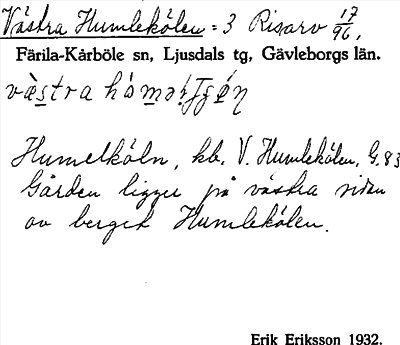 Västra Humlekölen = 3 Risarv 17/96,
Färila-Kårböle sn, Ljusdals tg, Gävleborgs län.
västra
Humelköln, kb. V. Humlekölen, G. 83
Gården ligger på västra sidan
av berget Humlekölen.
Erik Eriksson 1932.